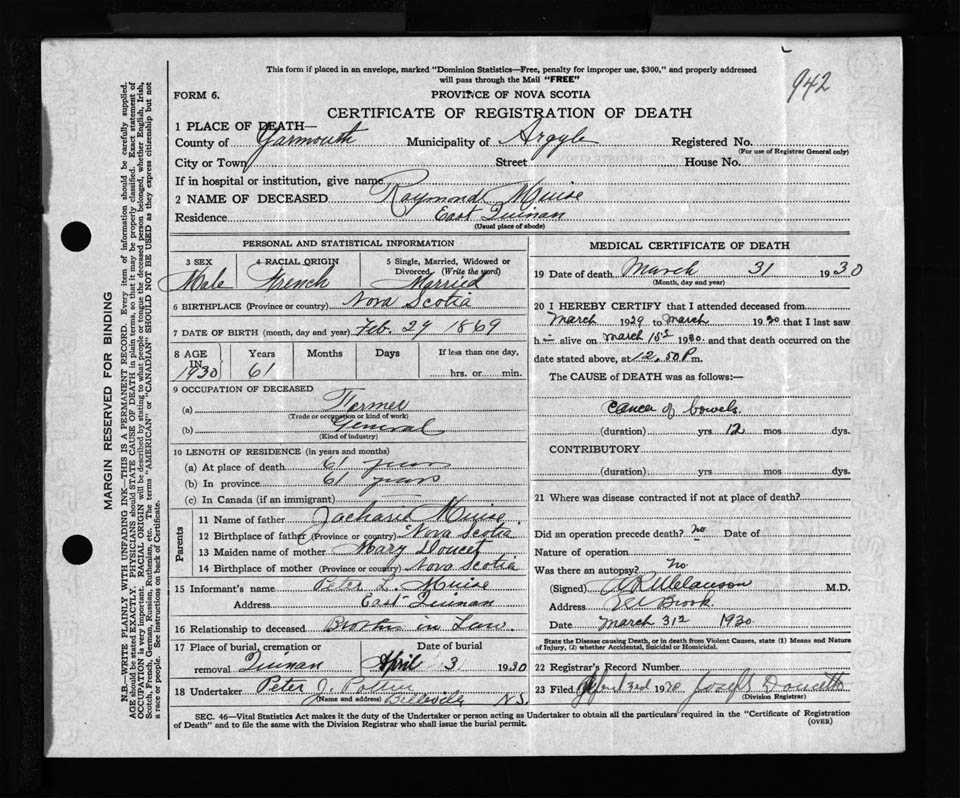 942
This form if placed in an envelope, marked "Dominion Statistics—Free, penalty for improper use, $300," and properly addressed
will pass through the Mail "FREE"
FORM 6.
PROVINCE OF NOVA SCOTIA
CERTIFICATE OF REGISTRATION OF DEATH
1 PLACE OF DEATH—
County of Yarmouth Municipality of Argyle Registered No.
(For use of Registrar General only)
City or Town Street House No.
If in hospital or institution, give name
2 NAME OF DECEASED Raymond Muise
Residence East Quinan
(Usual place of abode)
PERSONAL AND STATISTICAL INFORMATION
3 SEX 4 RACIAL ORIGIN 5 Single, Married, Widowed or
Divorced (Write the word)
Male French Married
6 BIRTHPLACE (Province or country) Nova Scotia
7 DATE OF BIRTH (month, day and year) Feb. 27 1869
8 AGE IN Years Months Days If less than one day,
1930 61 hrs. or min.
9 OCCUPATION OF DECEASED
(a) Farmer
(Trade or occupation or kind of work)
(b) General
(Kind of industry)
10 LENGTH OF RESIDENCE (in years and months)
(a) At place of death 61 years
(b) In province 61 years
(c) In Canada (if an immigrant)
Parents
11 Name of father Zacharie Muise
12 Birthplace of father (Province or country) Nova Scotia
13 Maiden name of mother Mary Doucet
14 Birthplace of mother (Province or country) Nova Scotia
15 Informant's name Peter L. Muise
Address East Quinan
16 Relationship to deceased Brother in Law.
17 Place of burial, cremation or Date of burial
removal Quinan April 3 1930
18 Undertaker Peter J.
(Name and address) Belleville N.S.
MEDICAL CERTIFICATE OF DEATH
19 Date of death March 31 1930
(Month, day and year)
20 I HEREBY CERTIFY that I attended deceased from
March 1929 to March 1930 that I last saw
h alive on March 1930 and that death occurred on the
date stated above, at 12.50 P m.
The CAUSE of DEATH was as follows:—
cancer of bowels.
(duration) yrs 12 mos. dys.
CONTRIBUTORY
(duration) yrs. mos. dys.
21 Where was disease contracted if not at place of death?
Did an operation precede death? no Date of
Nature of operation
Was there an autopsy? no
(Signed) M.D.
Address Brook
Date March 31st 1930
State the Disease causing Death, or in death from Violent Causes, state (1) Means and Nature
of Injury, (2) whether Accidental, Suicidal or Homicidal.
22 Registrar's Record Number
23 Filed 3rd 1930 Joseph Doucette
(Division Registrar)
SEC. 46—Vital Statistics Act makes it the duty of the Undertaker or person acting as Undertaker to obtain all the particulars required in the "Certificate of Registration
of Death" and to file the same with the Division Registrar who shall issue the burial permit.
(OVER)
MARGIN RESERVED FOR BINDING
N.B.—WRITE PLAINLY WITH UNFADING INK—THIS IS A PERMANENT RECORD. Every item of information should be carefully supplied.
AGE should be stated EXACTLY. PHYSICIANS should STATE CAUSE OF DEATH in plain terms, so that it may be properly classified. Exact statement of
OCCUPATION is very important. RACIAL ORIGIN will be described by stating to what people or tongue the deceased person belonged, whether English, Irish,
Scotch, French, German, Russian, Ruthenian, etc. The terms "AMERICAN" or "CANADIAN" SHOULD NOT BE USED as they express citizenship but not
a race or people. See instructions on back of Certificate.